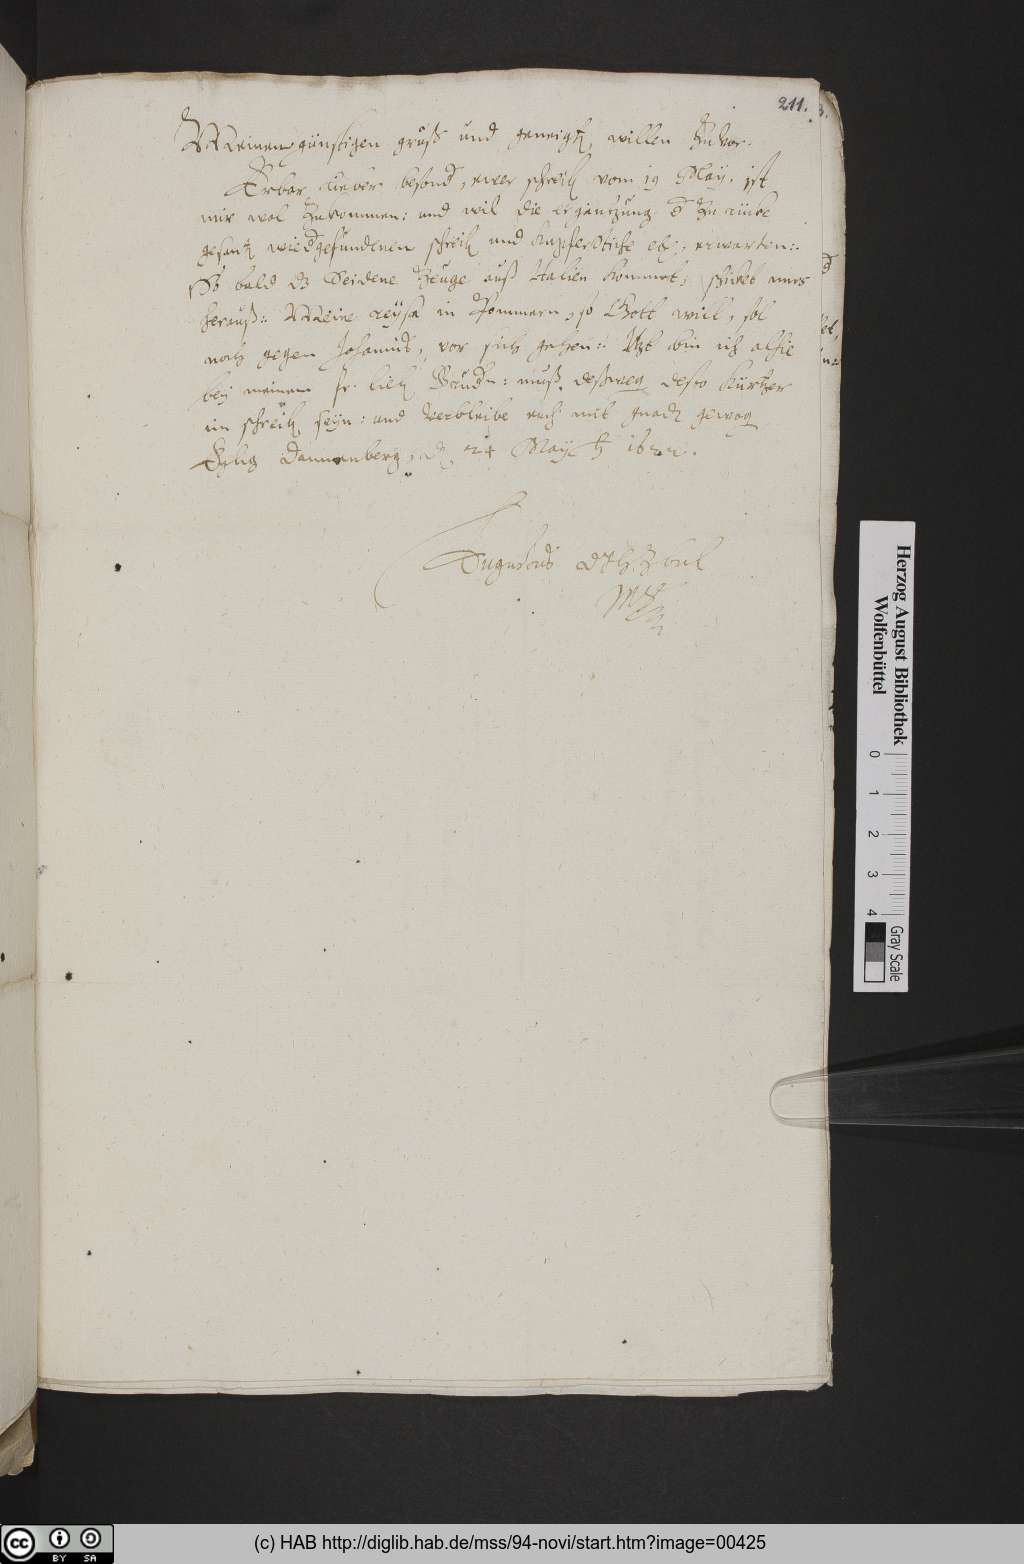 211.
Meinen günstigen gruß und geneigt. willen zuvor.
Erbar lieber besond., ewer schreib. vom 19 May. ist
mir wol zukommen: und wil die ergäntzung d. zu rücke
gesant. wiedgefundenen schreib. und Kupferstiche etc. erwarten:.
So bald dz Seidene Zeuge auß Italien kommet, schicket mirs
herauß:. Meine reyse in Pommern, so Gott will, sol
noch gegen Johannis, vor sich gehen:. Itzt bin ich alhie
bey meinem hr. lieb. Brudr.: muß deßweg. desto kürtzer
im schreib. seyn: und verbleibe euch mit gnad. gewog.
Eylig Dannenberg, d. 24 May
Augustus D J H Z B V L
Mpp
Herzog August Bibliothek
Wolfenbüttel
0 1 2 3 4
Gray Scale
cc BY SA
(c) HAB http://diglib.hab.de/mss/94-novi/start.htm?image=00425